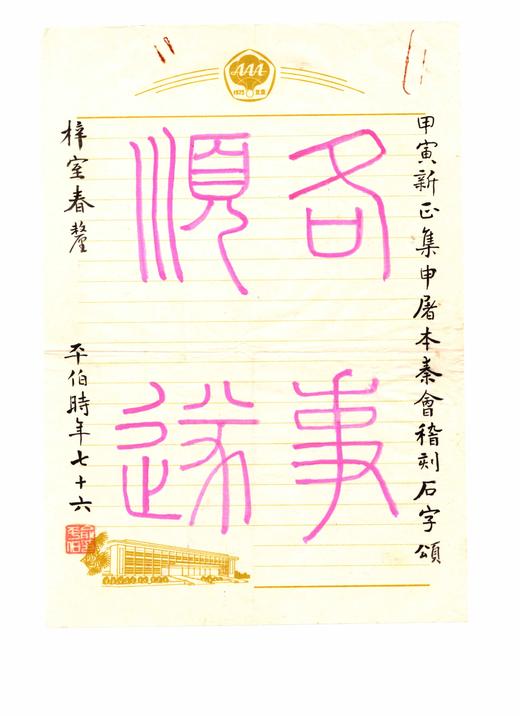 甲寅新正集申屠本秦會稽刻石字頌
各事
順遂
梓室春釐
平伯時年七十六
AAA